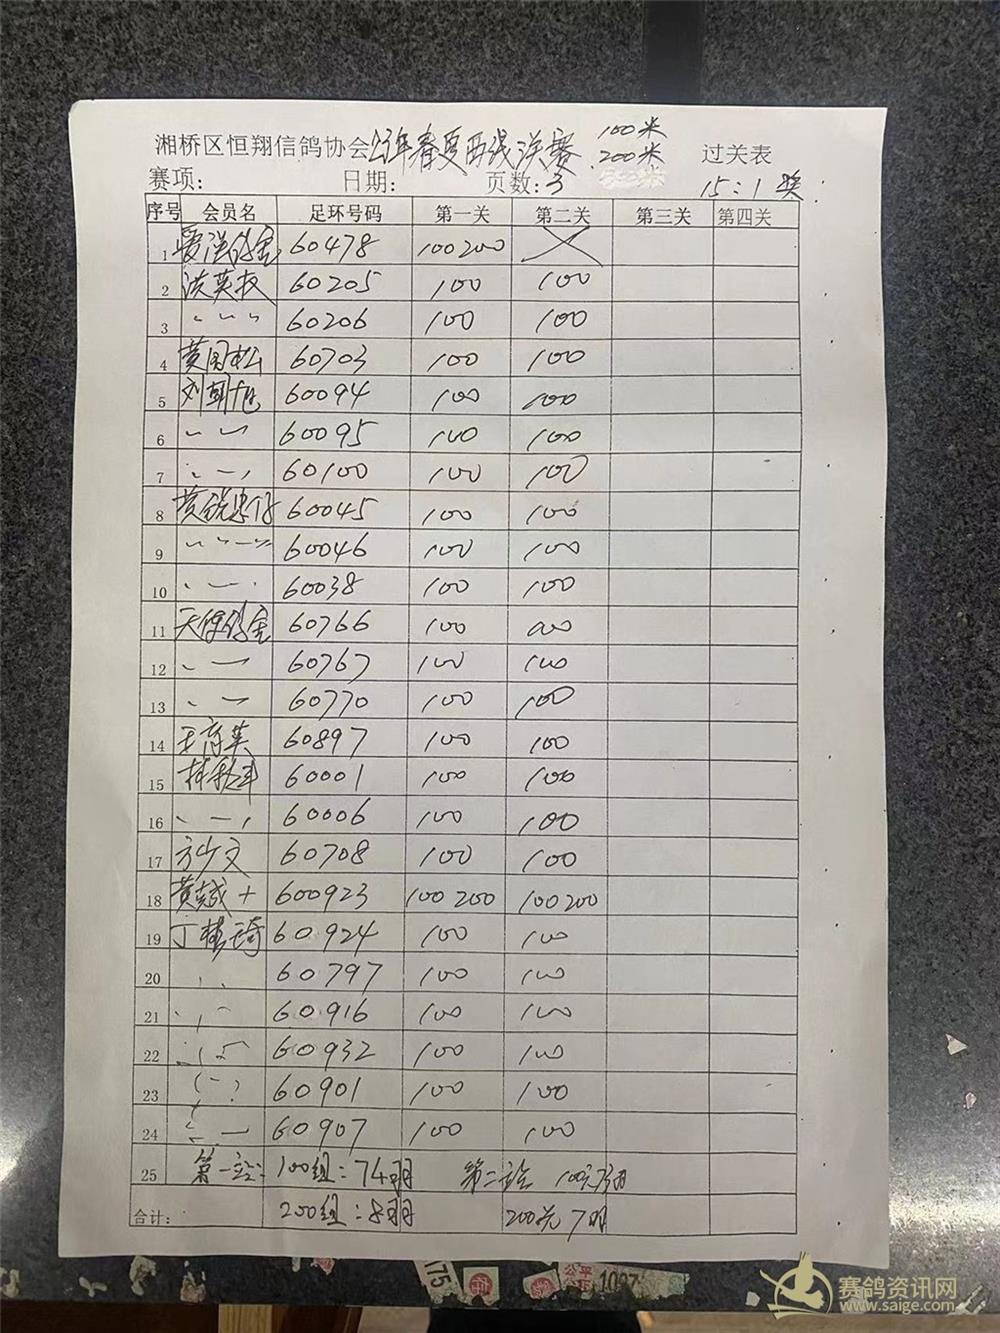 湘桥区恒翔信鸽协会23年春夏西线决赛 100米 200米 过关表
赛项: 日期: 页数:3 15:1奖
序号 会员名 足环号码 第一关 第二关 第三关 第四关
1 60478 100 200
2 洪英权 60205 100 100
3 〃 〃 〃 60206 100 100
4 黄国松 60703 100 100
5 刘朝旭 60094 100 100
6 〃 〃 60095 100 100
7 60100 100 100
8 60045 100 100
9 60046 100 100
10 60038 100 100
11 天使鸽舍 60766 100 100
12 60767 100 100
13 60770 100 100
14 60897 100 100
15 60001 100 100
16 60006 100 100
17 方少文 60708 100 100
18 600923 100 200 100 200
19 60924 100 100
20 60797 100 100
21 60916 100 100
22 60932 100 100
23 60901 100 100
24 60907 100 100
25 第一关: 100组: 74羽 第二关 100元
合计: 200组: 8羽 200元 7羽
175
赛鸽资讯网
www.saige.com